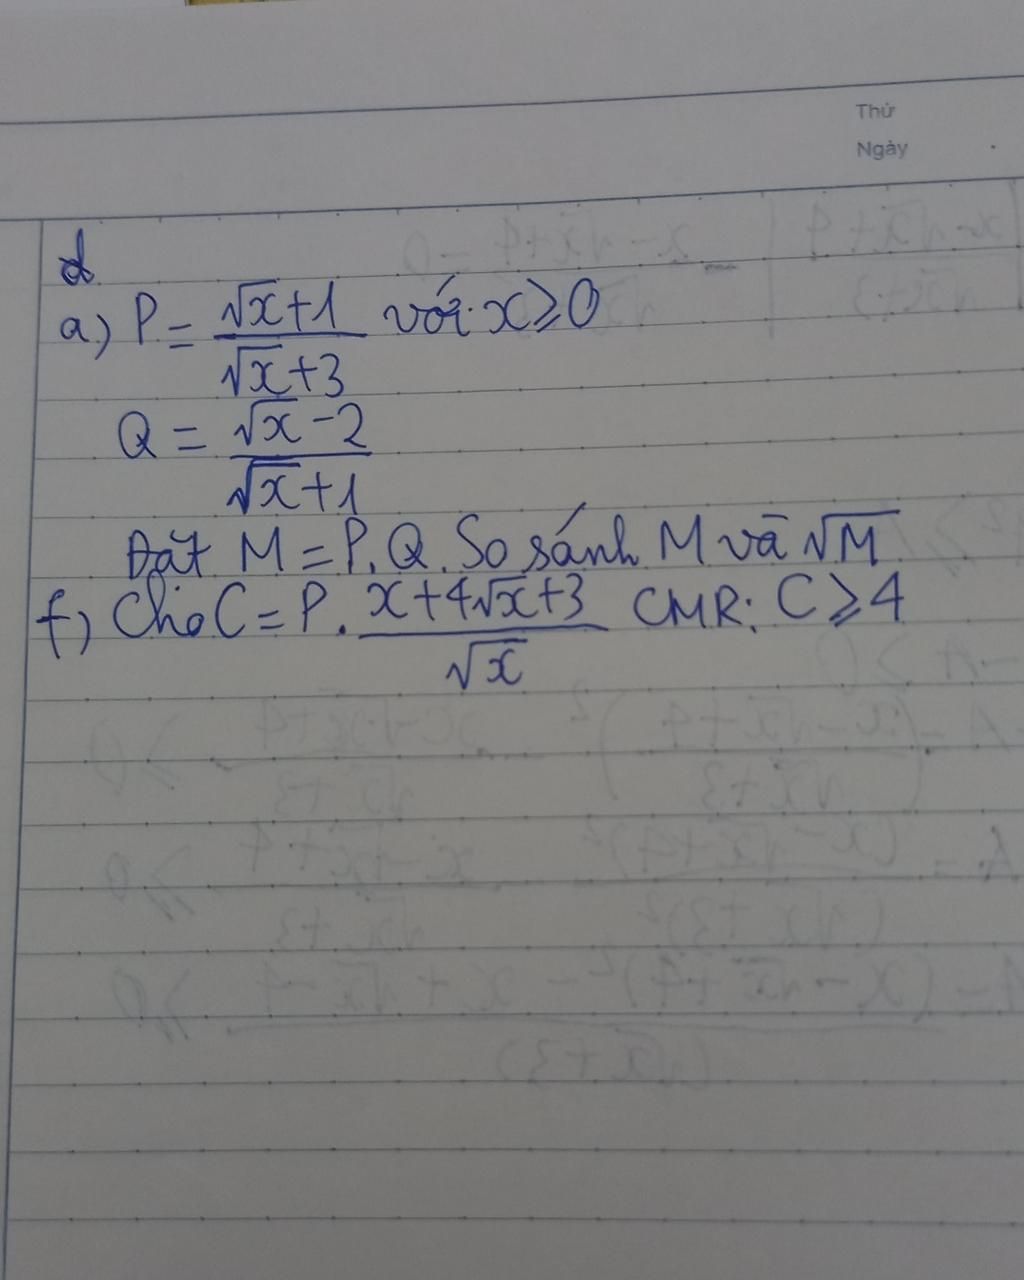 Thứ
Ngày
d
a) P = (√x+1)/(√x+3) với x ≥ 0
Q = (√x-2)/(√x+1)
Đặt M = P.Q. So sánh M và √M
f) Cho C = P. (x+4√x+3)/√x CMR: C ≥ 4